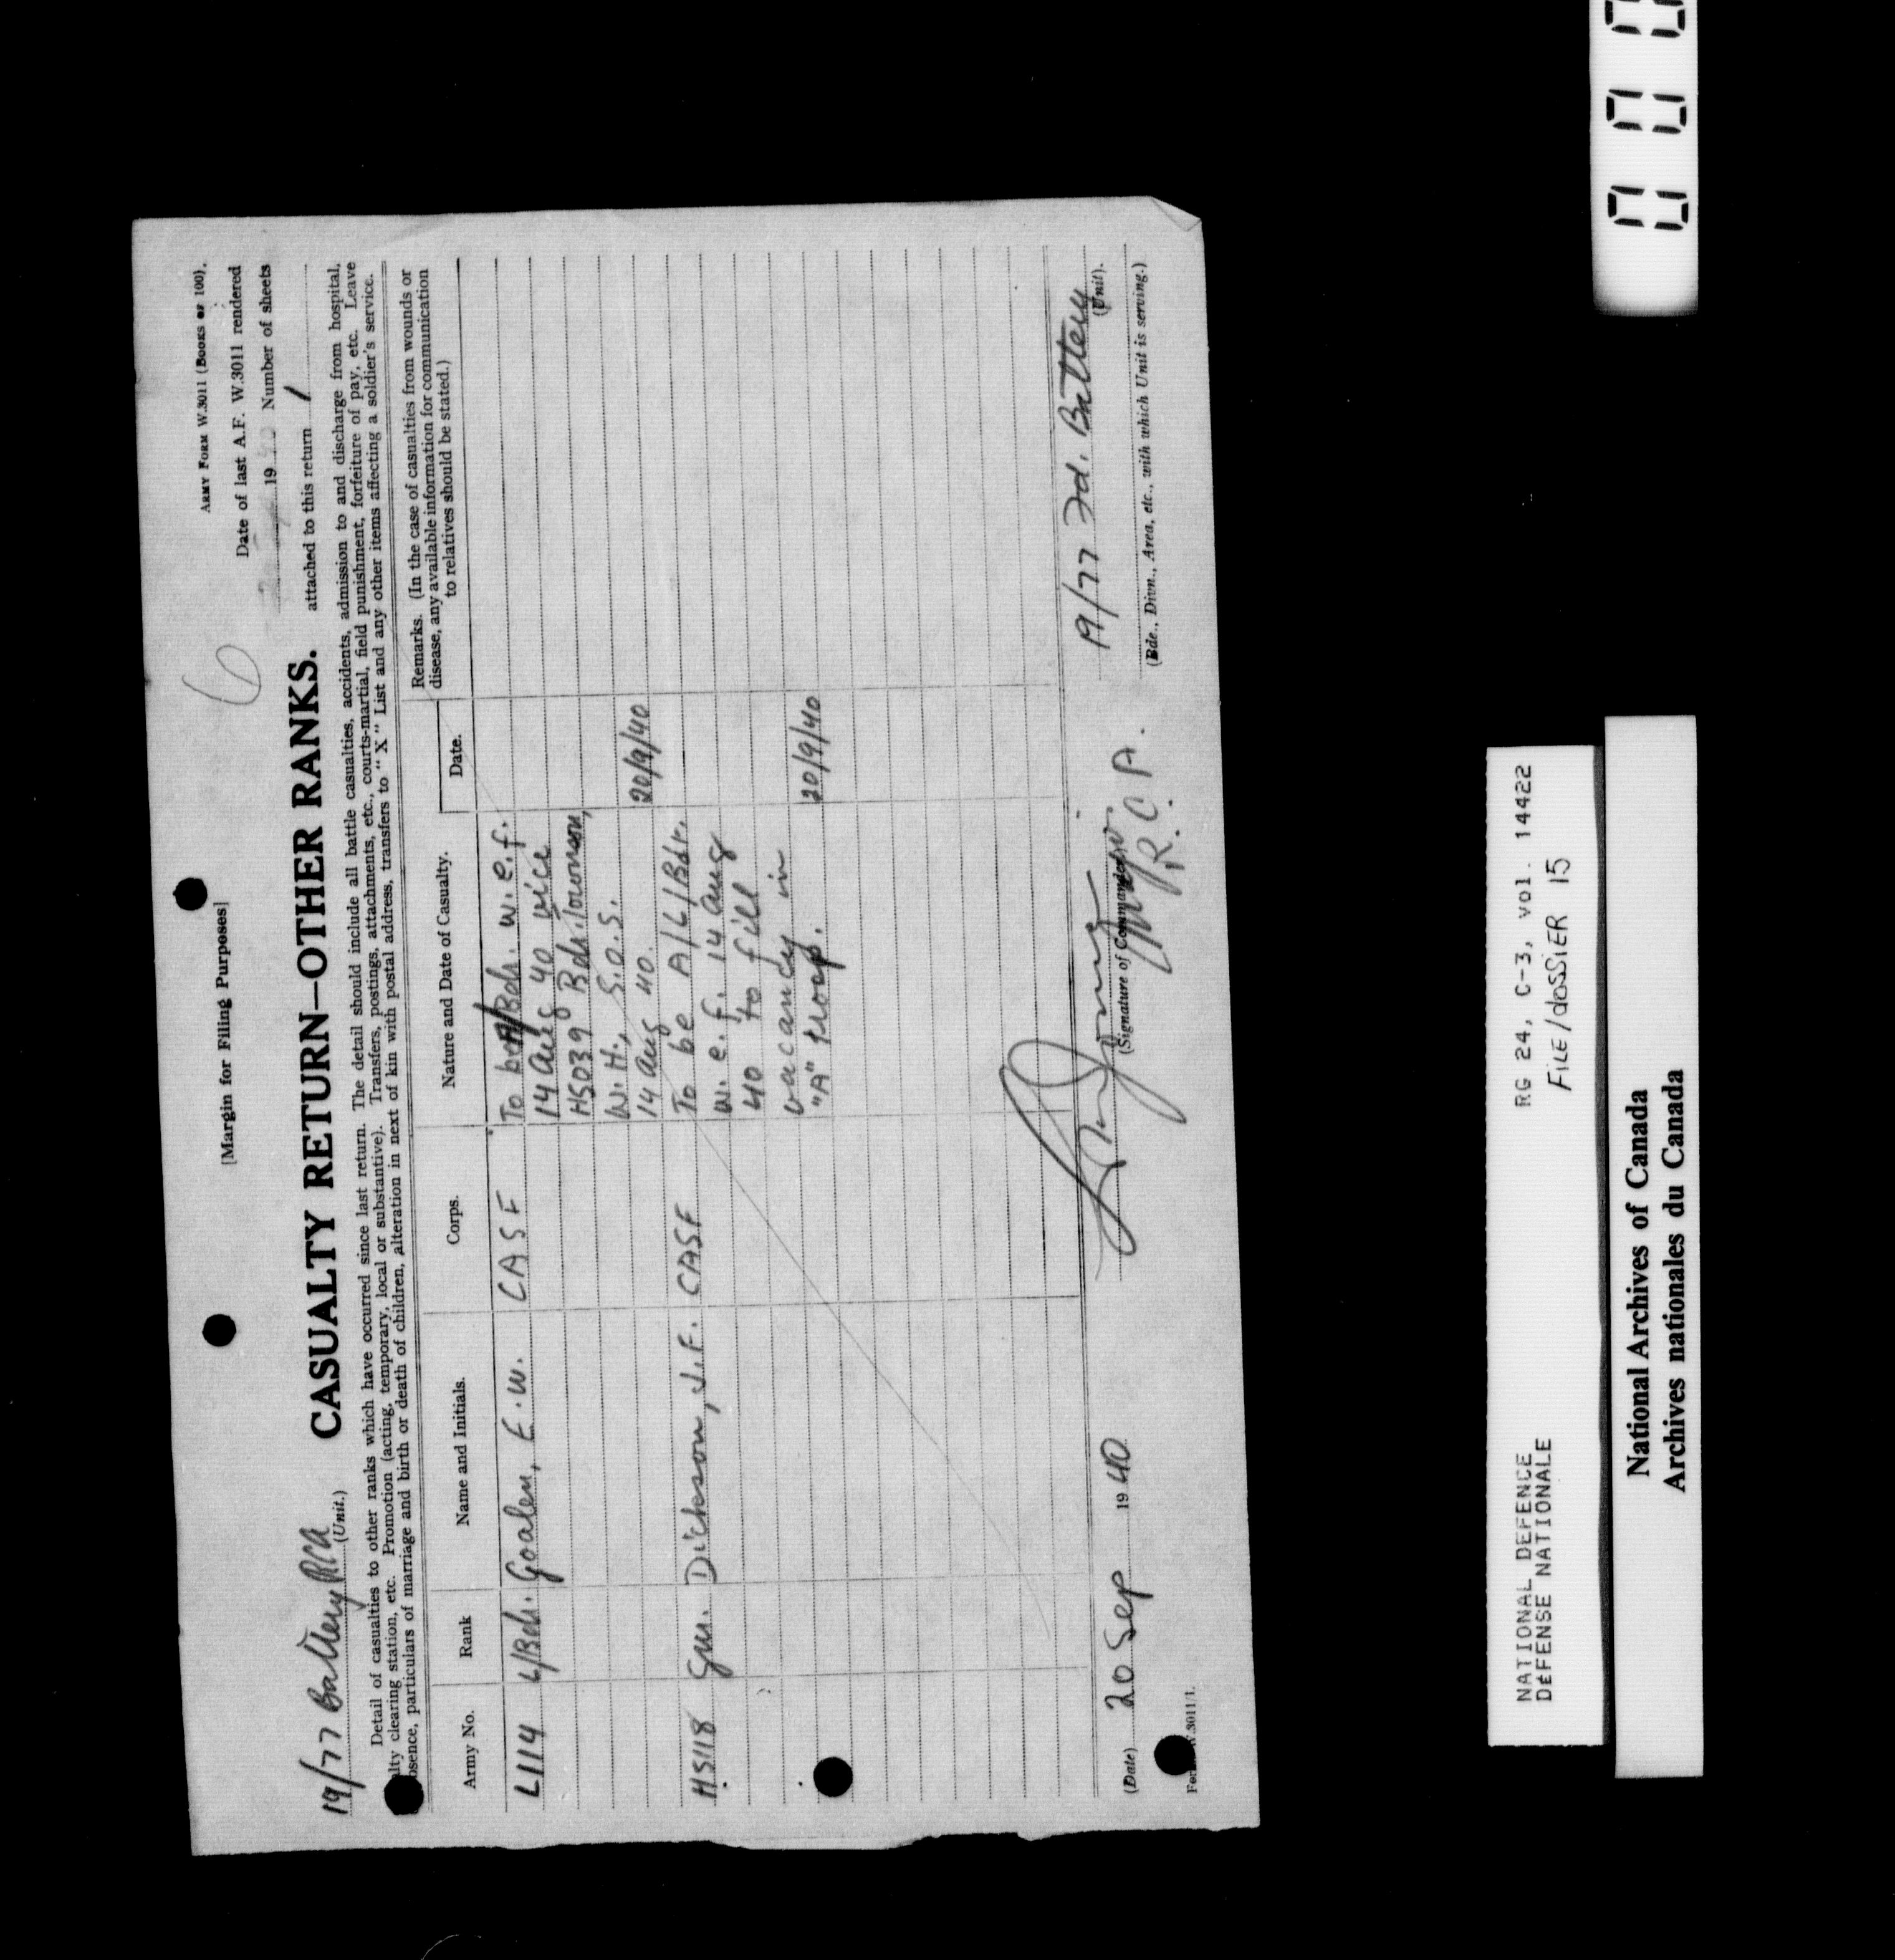 [Margin for Filing Purposes]
6
ARMY FORM W.3011 (BOOKS OF 100).
Date of last A.F. W.3011 rendered
1940 Number of sheets
attached to this return 1
19/77 Battery RCA
(Unit.)
CASUALTY RETURN—OTHER RANKS.
Detail of casualties to other ranks which have occurred since last return. The detail should include all battle casualties, accidents, admission to and discharge from hospital,
alty clearing station, etc. Promotion (acting, temporary, local or substantive). Transfers, postings, attachments, etc., courts-martial, field punishment, forfeiture of pay, etc. Leave
bsence, particulars of marriage and birth or death of children, alteration in next of kin with postal address, transfers to "X" List and any other items affecting a soldier's service.
Army No.
Rank
Name and Initials.
Corps.
Nature and Date of Casualty.
Date.
Remarks. (In the case of casualties from wounds or
disease, any available information for communication
to relatives should be stated.)
L114 L/Bdr. Goalen, E.W. CASF To be A/Bdr. w.e.f.
14 Aug 40 vice
H5039 Bdr. Townson,
W.H., S.O.S.
14 Aug 40. 20/9/40
H5118 Gnr. Dickeson, J.E. CASF To be A/L/Bdr.
w.e.f. 14 Aug
40 to fill
vacancy in
"A" Troop. 20/9/40
(Date) 20 Sep 1940
(Signature of Commander)
R.C.A.
19/77 Fd. Battery
(Unit).
(Bde., Divn., Area, etc., with which Unit is serving.)
W.3011/1.
NATIONAL DEFENCE
DÉFENSE NATIONALE
RG 24, C-3, vol. 14422
FILE/dOSSiER 15
National Archives of Canada
Archives nationales du Canada
000